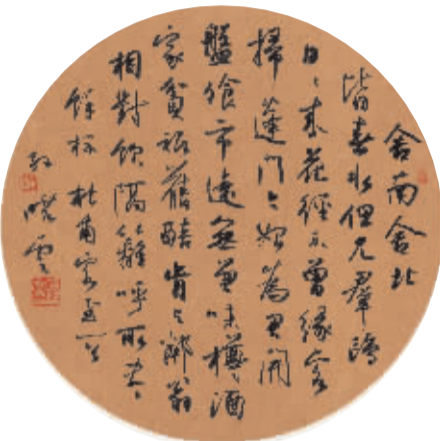 舍南舍北
皆春水但見羣鷗
日日來花徑不曾緣客
掃蓬門今始為君開
盤飧市遠無兼味樽酒
家貧祗舊醅肯與鄰翁
相對飲隔籬呼取盡
餘杯 杜甫客至
曉雲